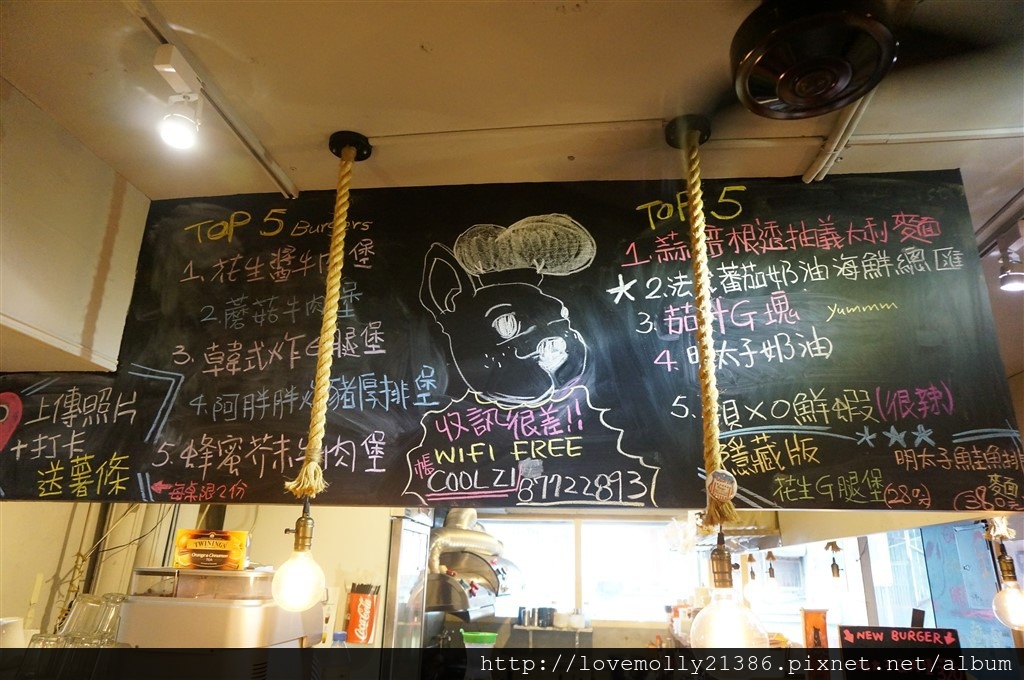 TOP 5 Burgers
1. 花生醬牛肉堡
2. 蘑菇牛肉堡
3. 韓式炸G腿堡
4. 阿胖胖 豬厚排堡
5. 蜂蜜芥末牛肉堡
上傳照片
+打卡
送薯條
每桌限2份
收訊很差!!
WIFI FREE
帳 COOLZI
87722893
TOP 5
1. 蒜 培根透抽義大利麵
2. 法 蕃茄奶油海鮮總匯
3. 茄汁G塊 yummm
4. 明太子奶油
5. XO鮮蝦(很辣)
隱藏版
花生G腿堡
明太子鮭魚排
麵
TWININGS
Coca-Cola
NEW BURGER
http://lovemolly21386.pixnet.net/album